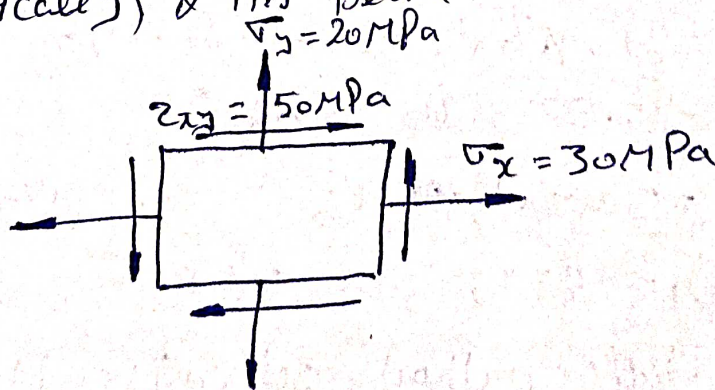 σy = 20MPa
τxy = 50MPa
σx = 30MPa